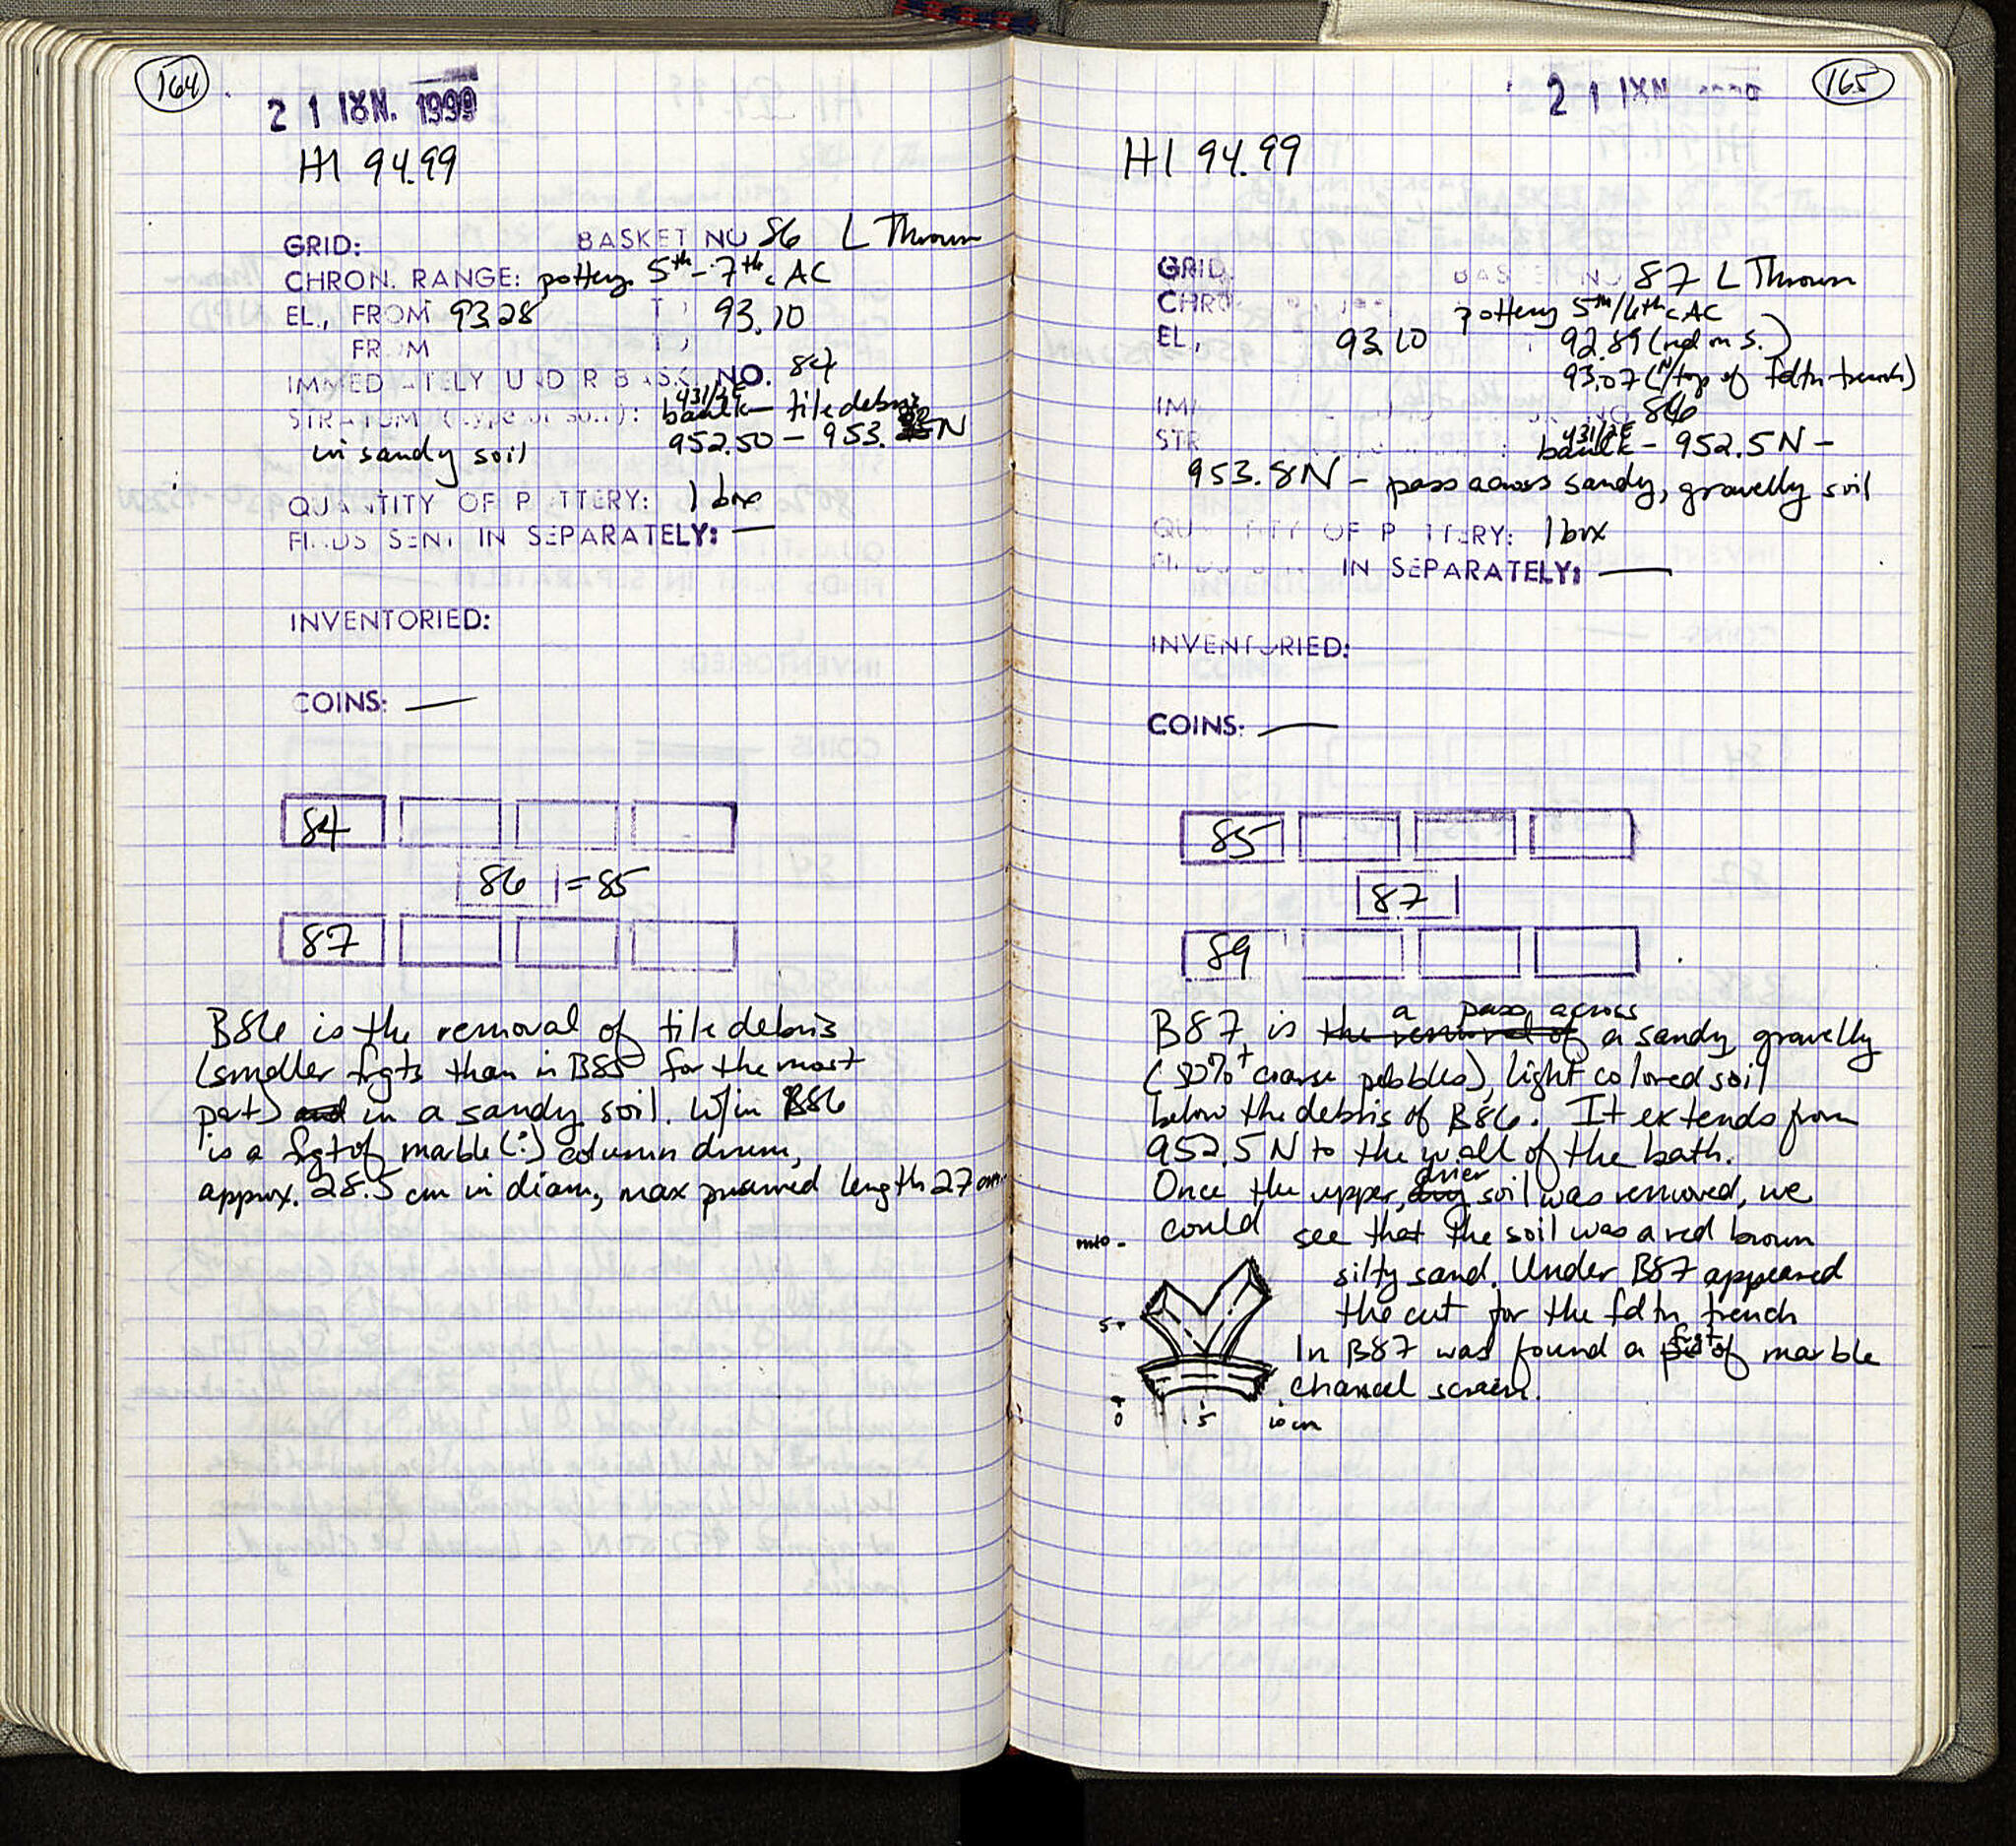 164
21 ΙΟΥΝ. 1999
H1 94.99
GRID: BASKET NO 86 L Thrown
CHRON. RANGE: pottery 5th - 7th c AC
EL., FROM 93.28 TO 93.10
FROM TO
IMMEDIATELY UNDER BASK NO. 84
STRATUM (type of soil): 431/2E baulk - tile debris
in sandy soil 952.50 - 953. N
QUANTITY OF POTTERY: 1 box
FINDS SENT IN SEPARATELY: —
INVENTORIED:
COINS: —
84
86 = 85
87
B86 is the removal of tile debris
(smaller frgts than in B85 for the most
part) and in a sandy soil. W/in B86
is a frgt of marble (?) column drum,
approx. 28.5 cm in diam, max preserved length 27 cm.
165
21 ΙΟΥΝ
H1 94.99
GRID. BASKET NO 87 L Thrown
CHRO pottery 5th/6th c AC
EL., 93.10 92.89 (nd on S.)
93.07 (N/top of fdtn trench)
IM NO 86
STR 431/2E baulk - 952.5N -
953.8N - pass across sandy, gravelly soil
QUANTITY OF POTTERY: 1 box
IN SEPARATELY: —
INVENTORIED:
COINS: —
85
87
89
B87 is the removal of a pass across a sandy, gravelly
( coarse pebbles), light colored soil
below the debris of B86. It extends from
952.5 N to the wall of the bath.
Once the upper, drier soil was removed, we
could see that the soil was a red brown
silty sand. Under B87 appeared
the cut for the fdtn trench
In B87 was found a frgt of marble
chancel screen.
10
5
0 5 10 cm